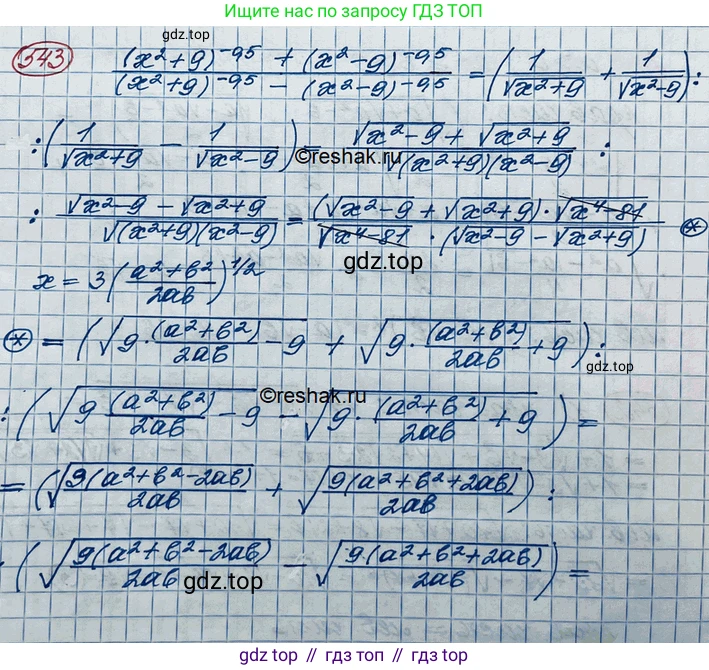 Ищите ответы по запросу ГДЗ ТОП
543 ((x²+9)^-0,5 + (x²-9)^-0,5) / ((x²+9)^-0,5 - (x²-9)^-0,5) = (1/√(x²+9) + 1/√(x²-9)) :
: (1/√(x²+9) - 1/√(x²-9)) = (√(x²-9) + √(x²+9)) / √((x²+9)(x²-9)) :
©reshak.ru
: (√(x²-9) - √(x²+9)) / √((x²+9)(x²-9)) = ((√(x²-9) + √(x²+9)) · √(x⁴-81)) / (√(x⁴-81) · (√(x²-9) - √(x²+9))) ⊛
gdz.top
x = 3((a²+b²)/2ab)^1/2
⊛ = (√(9·(a²+b²)/2ab - 9) + √(9·(a²+b²)/2ab + 9)) :
gdz.top
©reshak.ru
: (√(9(a²+b²)/2ab - 9) - √(9·(a²+b²)/2ab + 9)) =
= (√(9(a²+b²-2ab)/2ab) + √(9(a²+b²+2ab)/2ab)) :
gdz.top
: (√(9(a²+b²-2ab)/2ab) - √(9(a²+b²+2ab)/2ab)) =
gdz.top
gdz.top // гдз.топ // gdz.top